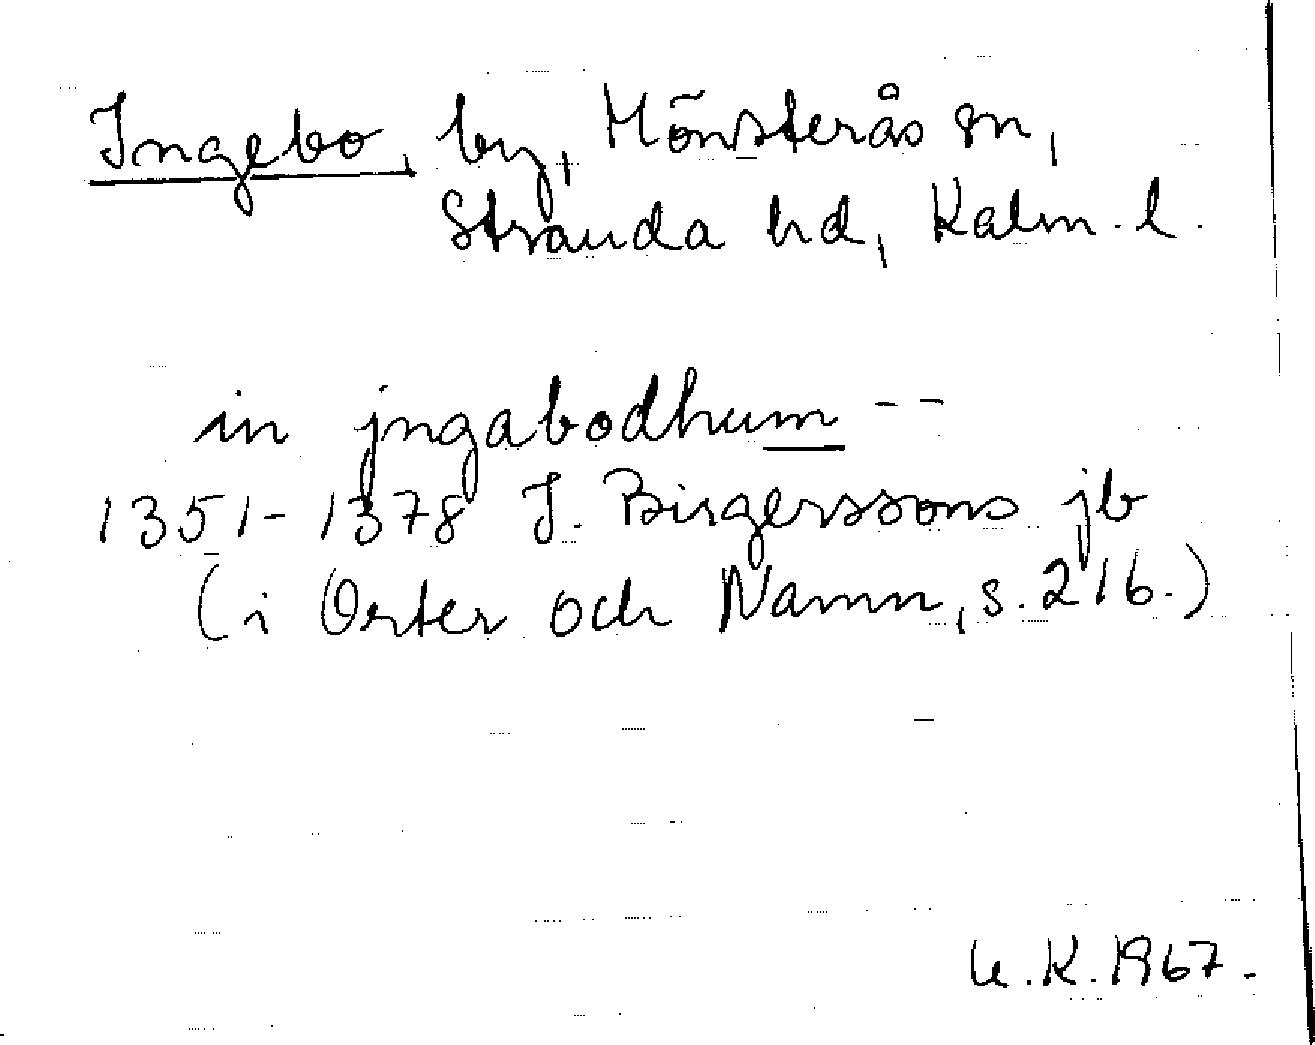 Ingebo, by, Mönsterås sn,
Stranda hd, Kalm. l.
in jngabodhum --
1351-1378 J. Birgerssons jb
(i Orter och Namn, s. 216.)
U.K. 1967.